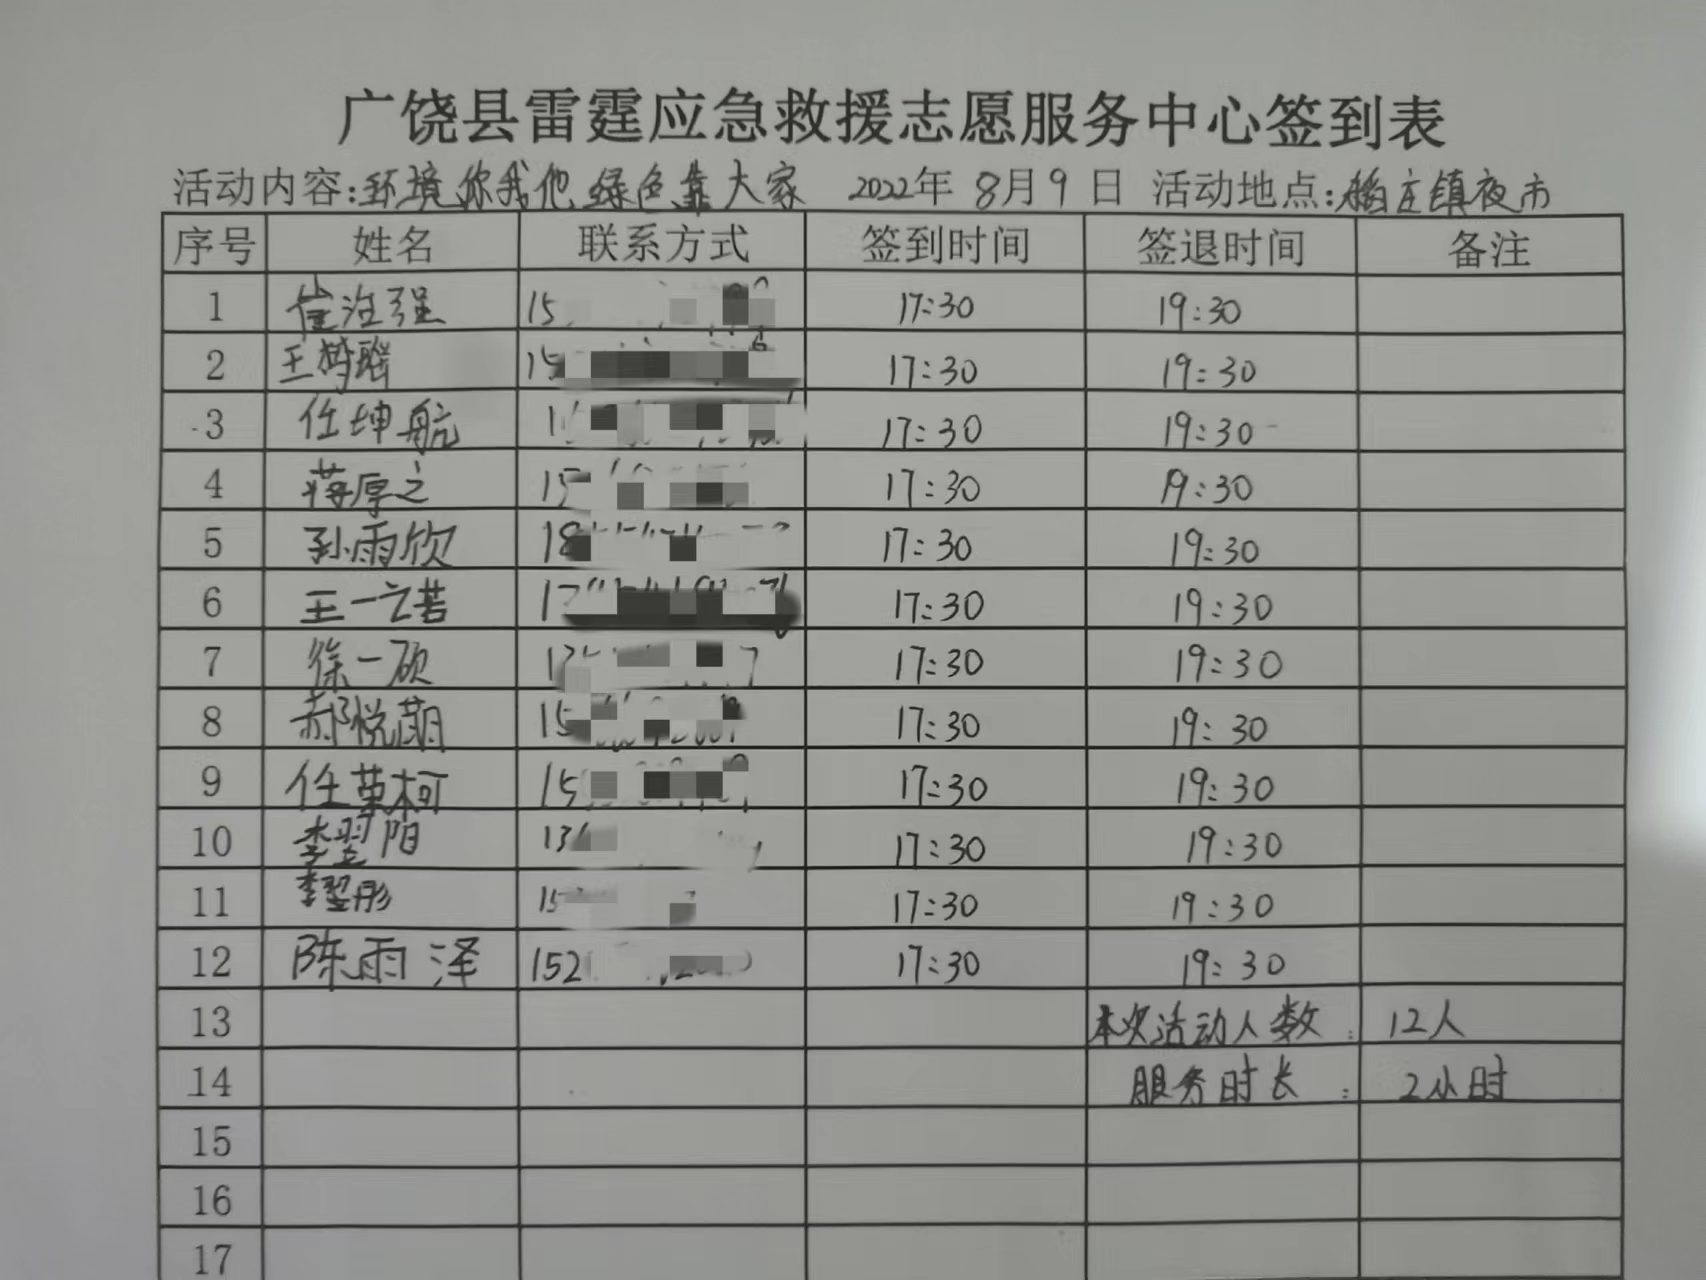 广饶县雷霆应急救援志愿服务中心签到表
活动内容:环境你我他,绿色靠大家 2022年 8月9日 活动地点:稻庄镇夜市
序号 姓名 联系方式 签到时间 签退时间 备注
1 崔注强 15 17:30 19:30
2 王梦瑶 15 17:30 19:30
3 任坤航 1 17:30 19:30
4 蒋厚之 15 17:30 19:30
5 孙雨欣 18 17:30 19:30
6 王一之若 17 17:30 19:30
7 徐一硕 13 17:30 19:30
8 郝悦萌 15 17:30 19:30
9 任菓柯 15 17:30 19:30
10 李翌阳 13 17:30 19:30
11 李翌彤 15 17:30 19:30
12 陈雨泽 152 17:30 19:30
13 本次活动人数: 12人
14 服务时长: 2小时
15
16
17